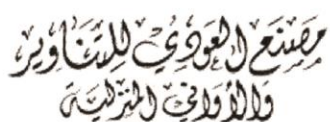 مصنع العودي للتناوير
والأواني المنزلية